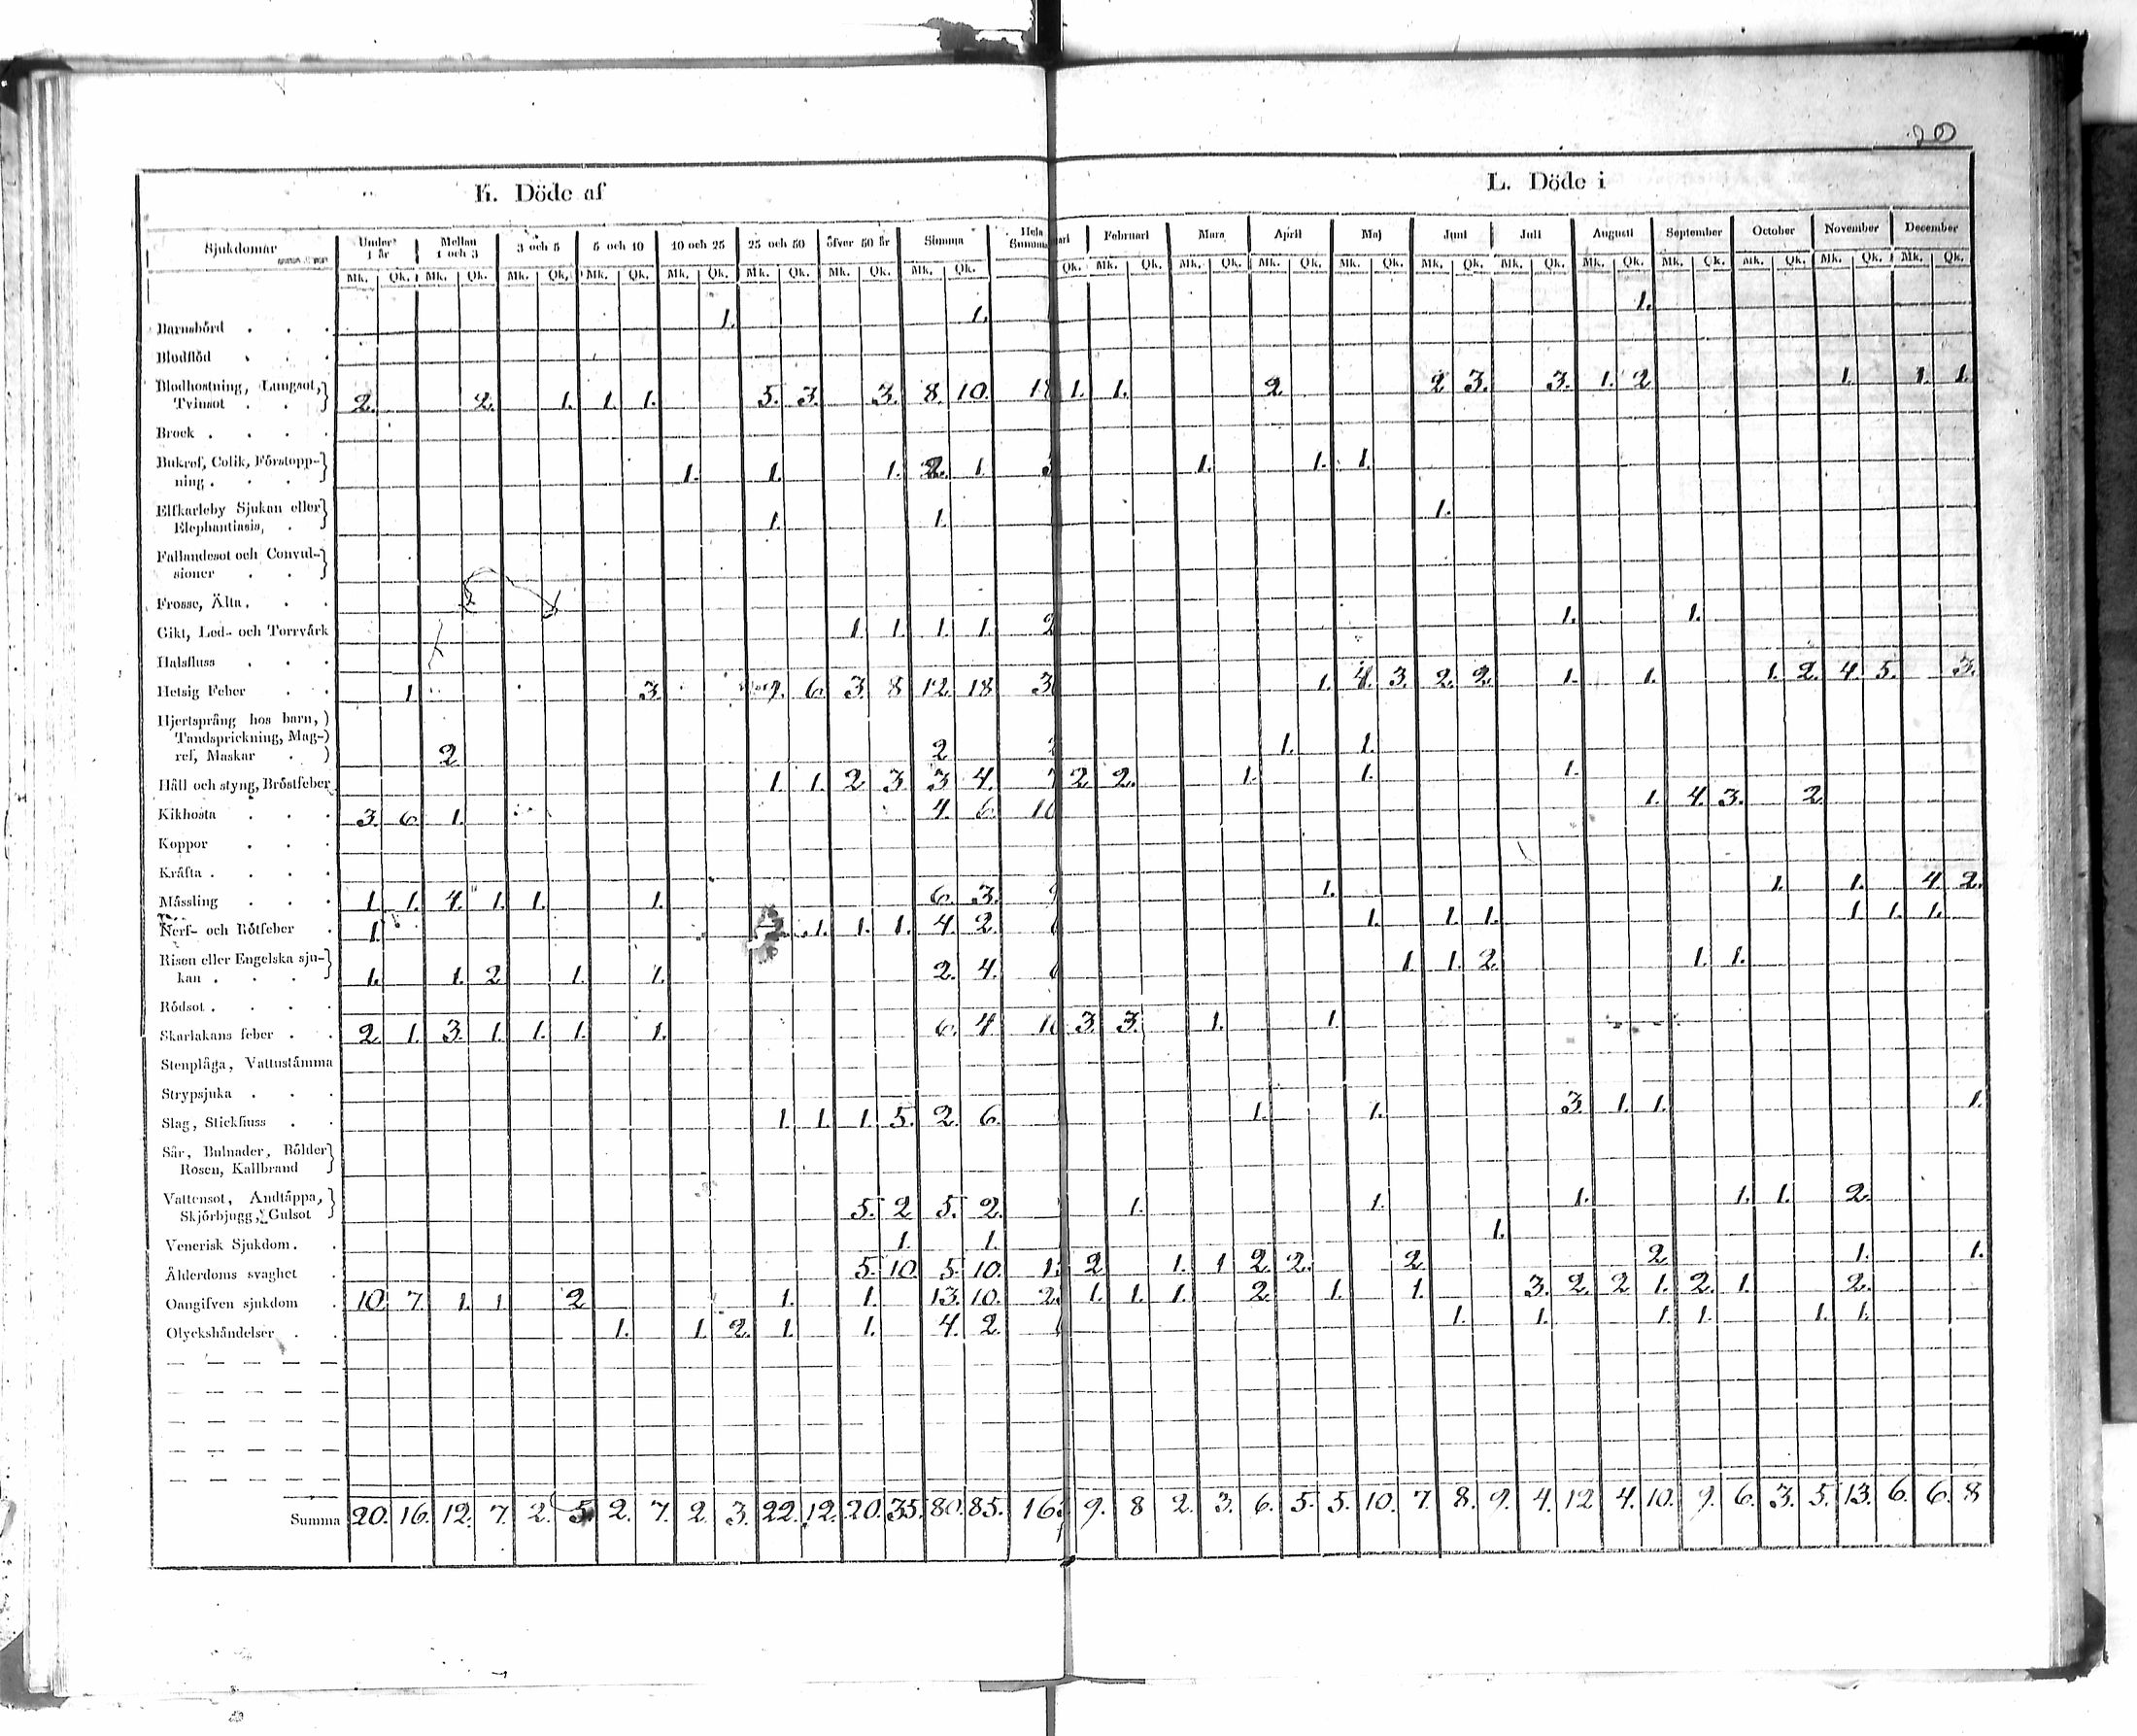 20
K. Döde af
L. Döde i
Sjukdomar Under 1 år Mellan 1 och 3 3 och 5 5 och 10 10 och 25 25 och 50 öfver 50 år Summa Hela Summa Februari Mars April Maj Juni Juli Augusti September October November December
Mk. Qk. Mk. Qk. Mk. Qk. Mk. Qk. Mk. Qk. Mk. Qk. Mk. Qk. Mk. Qk. Qk. Mk. Qk. Mk. Qk. Mk. Qk. Mk. Qk. Mk. Qk. Mk. Qk. Mk. Qk. Mk. Qk. Mk. Qk. Mk. Qk. Mk. Qk.
Barnsbörd . . . 1. 1. 1.
Blodflöd . . .
Blodhostning, Lungsot,
Tvinsot . . 2. 2. 1. 1. 1. 5. 3. 3. 8. 10. 18 1. 1. 2. 2 3. 3. 1. 2 1. 1. 1.
Brock . . . .
Bukref, Colik, Förstopp-
ning . . . 1. 1. 1. 2. 1. 1. 1. 1.
Elfkarleby Sjukan eller
Elephantiasis, . 1. 1. 1.
Fallandesot och Convul-
sioner . .
Frosse, Älta . . .
Gikt, Led- och Torrvärk 1. 1. 1. 1. 2 1. 1.
Halsfluss . . .
Hetsig Feber . . 1. 3. 9. 6. 3. 8 12. 18 3 1. 4. 3. 2. 2. 1. 1. 1. 2. 4. 5. 3.
Hjertsprång hos barn,
Tandsprickning, Mag-
ref, Maskar . 2 2 1. 1.
Håll och styng, Bröstfeber 1. 1. 2 3 3 4. 7 2 2. 1. 1. 1.
Kikhosta . . . 3. 6. 1. 4. 6. 10 1. 4. 3. 2
Koppor . . .
Kräfta . . . .
Måssling . . . 1. 1. 4. 1. 1. 1. 6. 3. 9 1. 1. 1. 4. 2.
Nerf- och Rötfeber . 1. 1. 1. 1. 4. 2. 1. 1. 1. 1. 1. 1.
Risen eller Engelska sju-
kan . . . 1. 1. 2. 1. 1. 2. 4. 1. 1. 2. 1. 1.
Rödsot . . . .
Skarlakans feber . . 2. 1. 3. 1. 1. 1. 1. 6. 4 10 3. 3. 1. 1.
Stenplåga, Vattustämma
Strypsjuka . . .
Slag, Stickfluss . . 1. 1. 1. 5. 2. 6. 1. 1. 3. 1. 1. 1.
Sår, Bulnader, Bölder
Rosen, Kallbrand
Vattensot, Andtäppa,
Skjörbjugg, Gulsot 5. 2 5. 2. 1. 1. 1. 1. 1. 2.
Venerisk Sjukdom . . 1. 1. 1.
Ålderdoms svaghet . 5. 10. 5. 10. 1 2 1. 1 2. 2. 2 2. 1. 1.
Oangifven sjukdom . 10. 7. 1. 1. 2 1. 1. 13. 10. 2 1. 1. 1. 2 1. 1. 3. 2. 2 1. 2. 1. 2.
Olyckshändelser . . 1. 1. 2. 1. 1. 4. 2. 1. 1. 1. 1. 1. 1.
Summa 20. 16. 12. 7. 2. 5 2. 7. 2. 3. 22. 12. 20. 35. 80. 85. 16 9. 8 2. 3. 6. 5. 5. 10. 7. 8. 9. 4. 12 4. 10. 9. 6. 3. 5. 13. 6. 6. 8